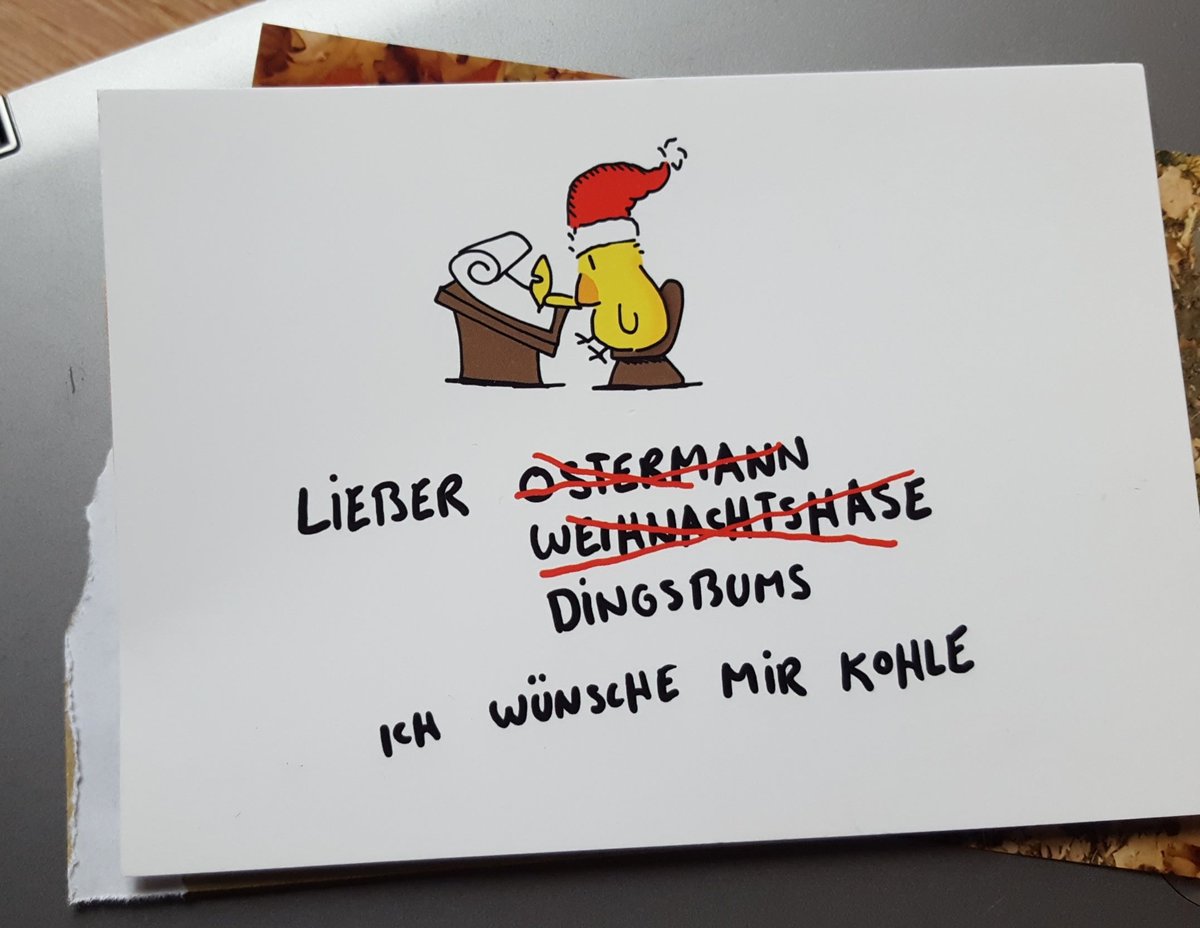 LIEBER OSTERMANN
WEIHNACHTSHASE
DINGSBUMS
ICH WÜNSCHE MIR KOHLE